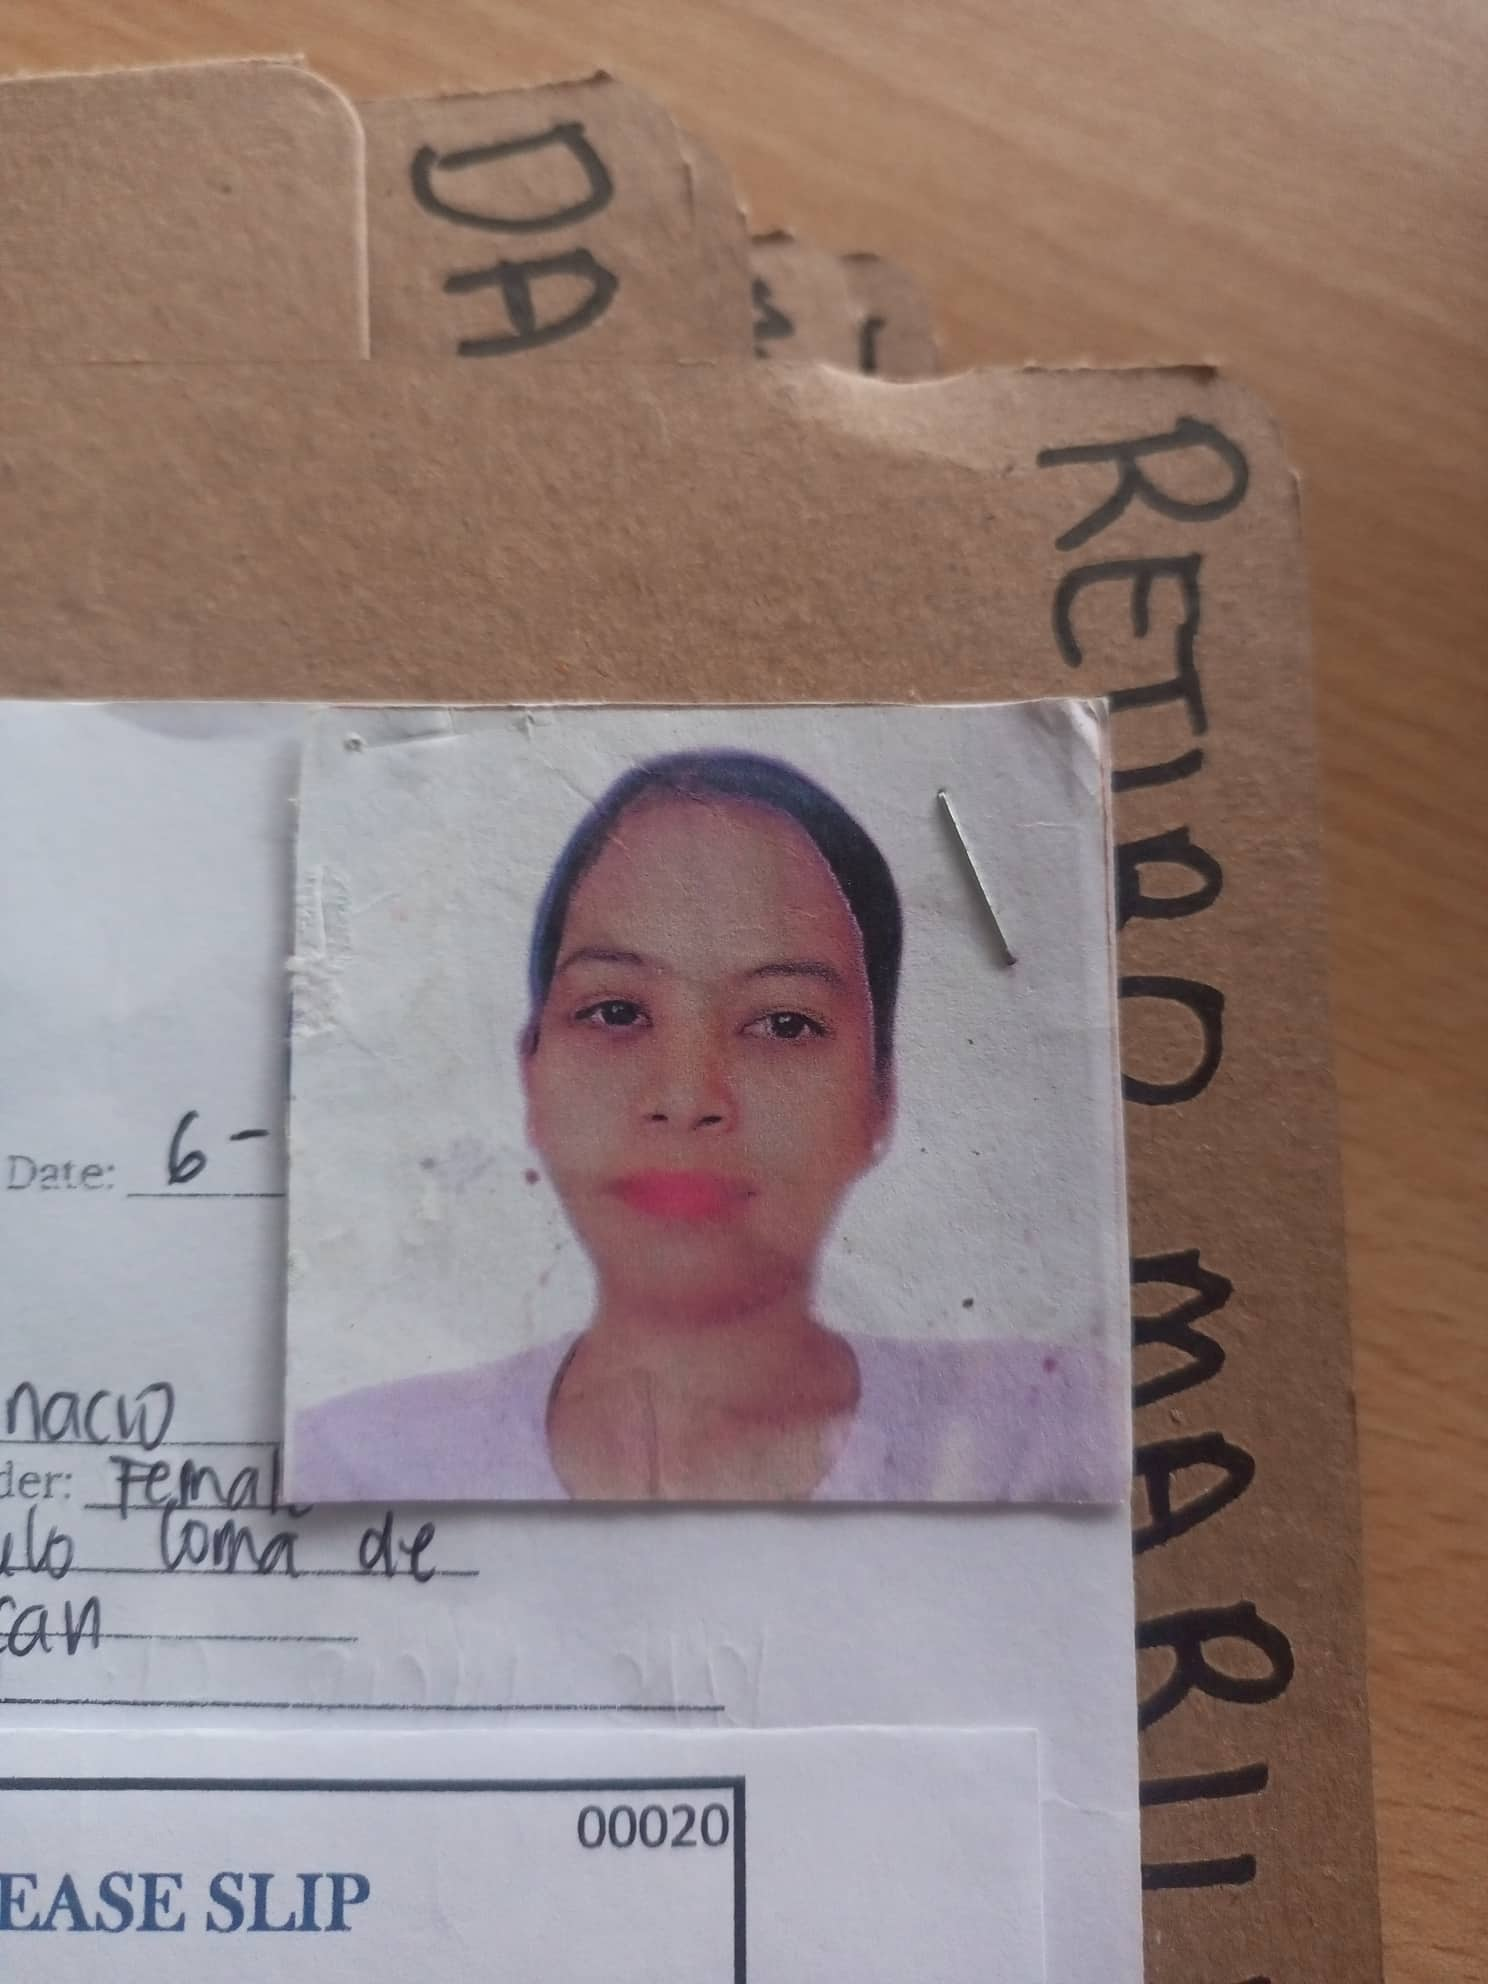 DA
RETIRO MARI
Date: 6-
nacio
der: Femal
ulo loma de
can
00020
EASE SLIP